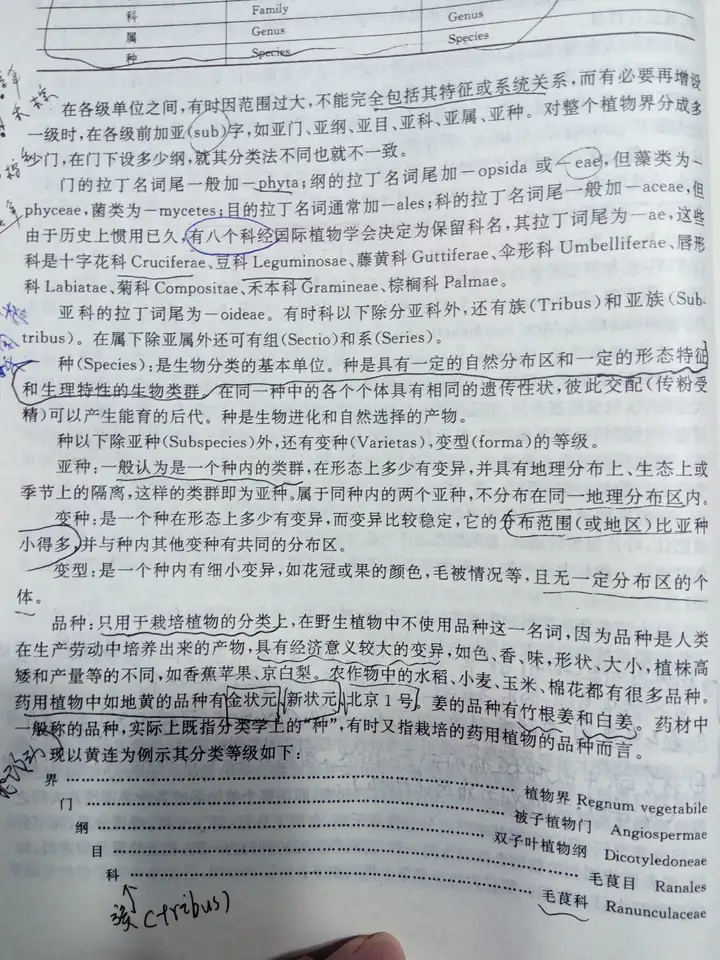 科 Family Genus
属 Genus Species
种 Species
在各级单位之间,有时因范围过大,不能完全包括其特征或系统关系,而有必要再增设
一级时,在各级前加亚(sub)字,如亚门、亚纲、亚目、亚科、亚属、亚种。对整个植物界分成多
少门,在门下设多少纲,就其分类法不同也就不一致。
门的拉丁名词尾一般加—phyta;纲的拉丁名词尾加—opsida 或—eae,但藻类为—
phyceae,菌类为—mycetes;目的拉丁名词通常加—ales;科的拉丁名词尾一般加—aceae,但
由于历史上惯用已久,有八个科经国际植物学会决定为保留科名,其拉丁词尾为—ae,这些
科是十字花科 Cruciferae、豆科 Leguminosae、藤黄科 Guttiferae、伞形科 Umbelliferae、唇形
科 Labiatae、菊科 Compositae、禾本科 Gramineae、棕榈科 Palmae。
亚科的拉丁词尾为—oideae。有时科以下除分亚科外,还有族(Tribus)和亚族(Sub-
tribus)。在属下除亚属外还可有组(Sectio)和系(Series)。
种(Species):是生物分类的基本单位。种是具有一定的自然分布区和一定的形态特征
和生理特性的生物类群。在同一种中的各个个体具有相同的遗传性状,彼此交配(传粉受
精)可以产生能育的后代。种是生物进化和自然选择的产物。
种以下除亚种(Subspecies)外,还有变种(Varietas),变型(forma)的等级。
亚种:一般认为是一个种内的类群,在形态上多少有变异,并具有地理分布上、生态上或
季节上的隔离,这样的类群即为亚种。属于同种内的两个亚种,不分布在同一地理分布区内。
变种:是一个种在形态上多少有变异,而变异比较稳定,它的分布范围(或地区)比亚种
小得多,并与种内其他变种有共同的分布区。
变型:是一个种内有细小变异,如花冠或果的颜色,毛被情况等,且无一定分布区的个
体。
品种:只用于栽培植物的分类上,在野生植物中不使用品种这一名词,因为品种是人类
在生产劳动中培养出来的产物,具有经济意义较大的变异,如色、香、味,形状、大小,植株高
矮和产量等的不同,如香蕉苹果、京白梨。农作物中的水稻、小麦、玉米、棉花都有很多品种。
药用植物中如地黄的品种有金状元、新状元、北京1号。姜的品种有竹根姜和白姜。药材中
一般称的品种,实际上既指分类学上的“种”,有时又指栽培的药用植物的品种而言。
现以黄连为例示其分类等级如下:
界 …… 植物界 Regnum vegetabile
门 …… 被子植物门 Angiospermae
纲 …… 双子叶植物纲 Dicotyledoneae
目 …… 毛茛目 Ranales
科 …… 毛茛科 Ranunculaceae
族 (tribus)